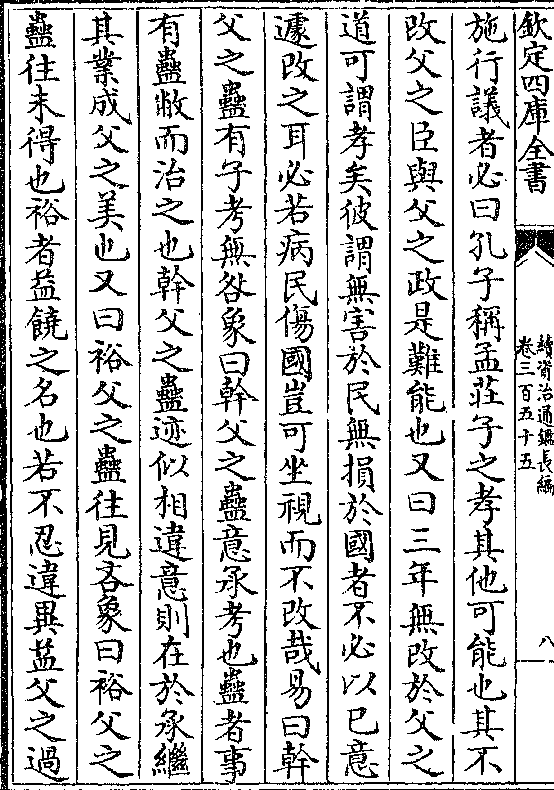 欽定四庫全書
續資治通鑑長編
卷三百五十五
八
施行議者必曰孔子稱孟莊子之孝其他可能也其不
改父之臣與父之政是難能也又曰三年無改於父之
道可謂孝矣彼謂無害於民無損於國者不必以已意
遽改之耳必若病民傷國豈可坐視而不改哉易曰幹
父之蠱有子考無咎象曰幹父之蠱意承考也蠱者事
有蠱敝而治之也幹父之蠱迹似相違意則在於承繼
其業成父之美也又曰裕父之蠱往見吝象曰裕父之
蠱往未得也裕者益饒之名也若不忍違異益父之過